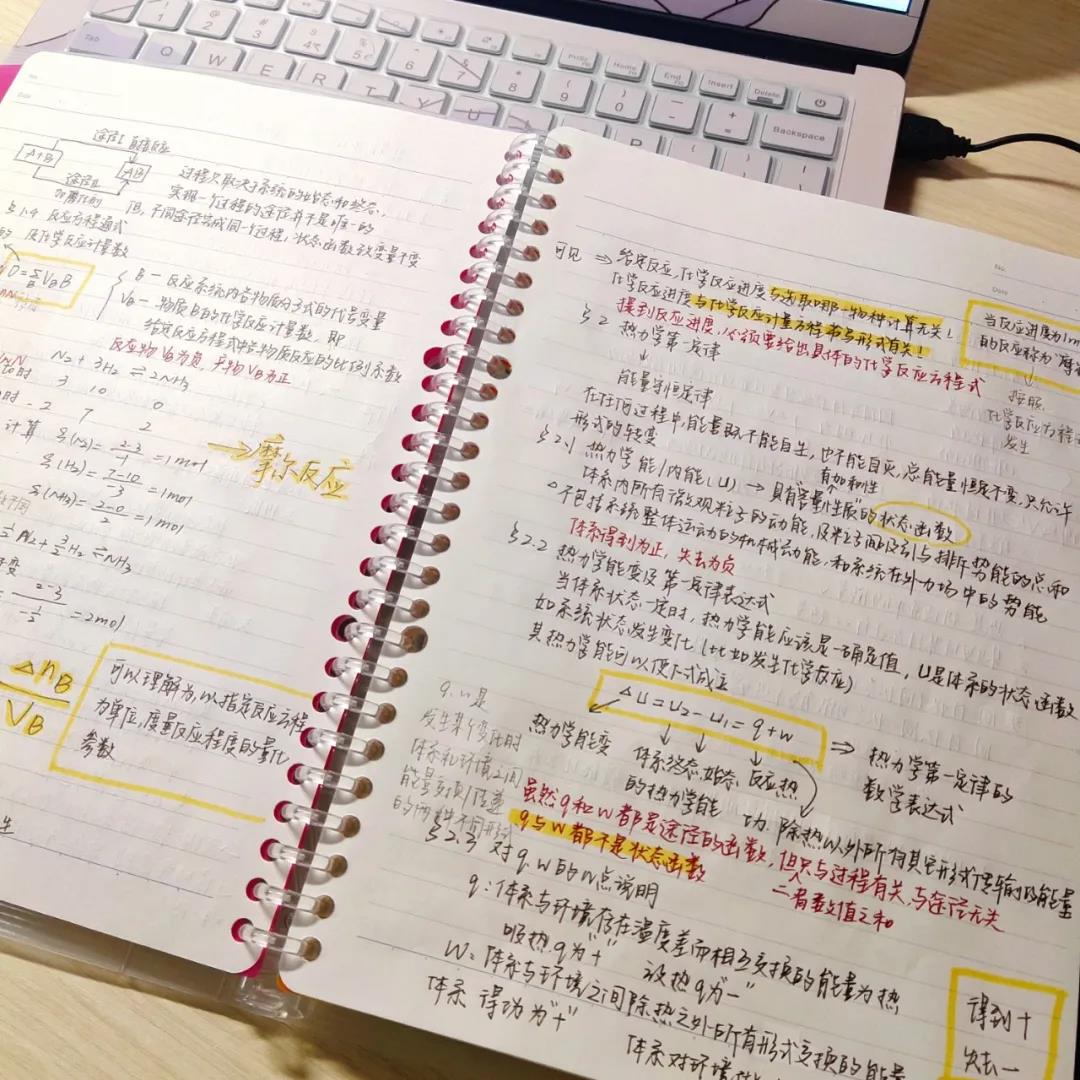 途径I 直接反应
A+B
AB
途径II
加催化剂
过程只取决于系统的始态和终态,
实现一个过程的途径并不是唯一的
但,不同途径完成同一个过程,状态函数改变量不变
§1.4 反应方程通式
化学反应计量数
0=∑VBB
B
B — 反应系统内各物质的分子式的代号变量
VB — 物质B的化学反应计量数,即
给定反应方程式中各物质反应的比例系数
反应物VB为负,产物VB为正
N2 + 3H2 ⇌ 2NH3
3 10 0
时 - 2 7 2
计算 ξ(N2)= 2-3/-1 =1mol
ξ(H2)= 7-10/-3 =1mol
ξ(NH3)= 2-0/2 =1mol
→摩尔反应
N2+3/2H2⇌NH3
2-3/-1/2 =2mol
ΔnB
VB
可以理解为,以指定反应方程
为单位,度量反应程度的量化
参数
可见 ⇒ 给定反应,化学反应进度与选取哪一物种计算无关!
化学反应进度与化学反应计量方程书写形式有关!
提到反应进度,必须要给出具体的化学反应方程式
当反应进度为1m
的反应称为"摩尔
↓
按照
化学反应方程
发生
§2 热力学第一定律
↓
能量守恒定律
在任何过程中,能量既不能自生,也不能自灭,总能量恒定不变,只允许
形式的转变
有加和性
§2.1 热力学能/内能(U) → 具有"容量性质"的状态函数
体系内所有微观粒子的动能,及粒子间吸引与排斥势能的总和
△不包括系统整体运动的机械动能,和系统在外力场中的势能
体系得到为正,失去为负
§2.2 热力学能变及第一定律表达式
当体系状态一定时,热力学能应该是一确定值,U是体系的状态函数
如系统状态发生变化(比如发生化学反应)
其热力学能可以使下式成立
ΔU=U2-U1=q+w
⇒ 热力学第一定律的
数学表达式
热力学能变
体系终态,始态,反应热
的热力学能
功.除热以外所有其它形式传输的能量
q,w是
发生某个变化时
体系和环境之间
能量交换/传递
的两种不同形式
虽然q和w都是途径的函数,但只与过程有关,与途径无关
二者数值之和
q与w都不是状态函数
§2.3 对q.w的n点说明
q:体系与环境存在温度差而相互交换的能量为热,
吸热q为"+" 放热q为"-"
W:体系与环境之间除热之外所有形式交换的能量
体系 得功为"+"
体系对环境
得到+
失去-
Tab
Q
W
E
R
T
Y
U
PrtSc
Home
End
Insert
Delete
Backspace